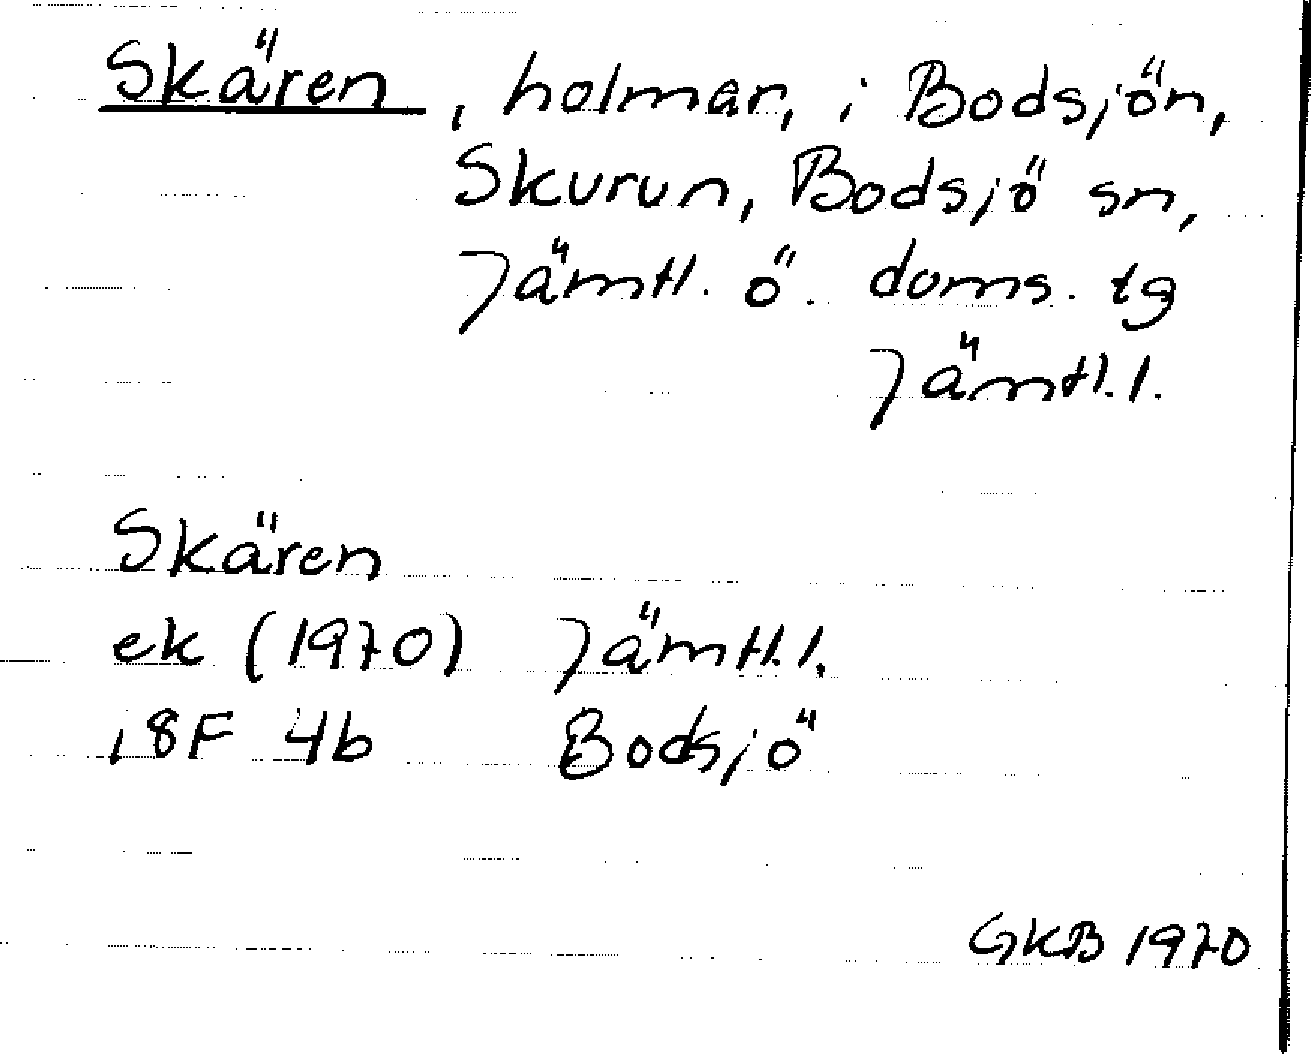 Skären, holmar, i Bodsjön,
Skurun, Bodsjö sn,
Jämtl. ö. doms. tg
Jämtl. l.
Skären
ek (1970) Jämtl. l.
18F 4b Bodsjö
GKB 1970